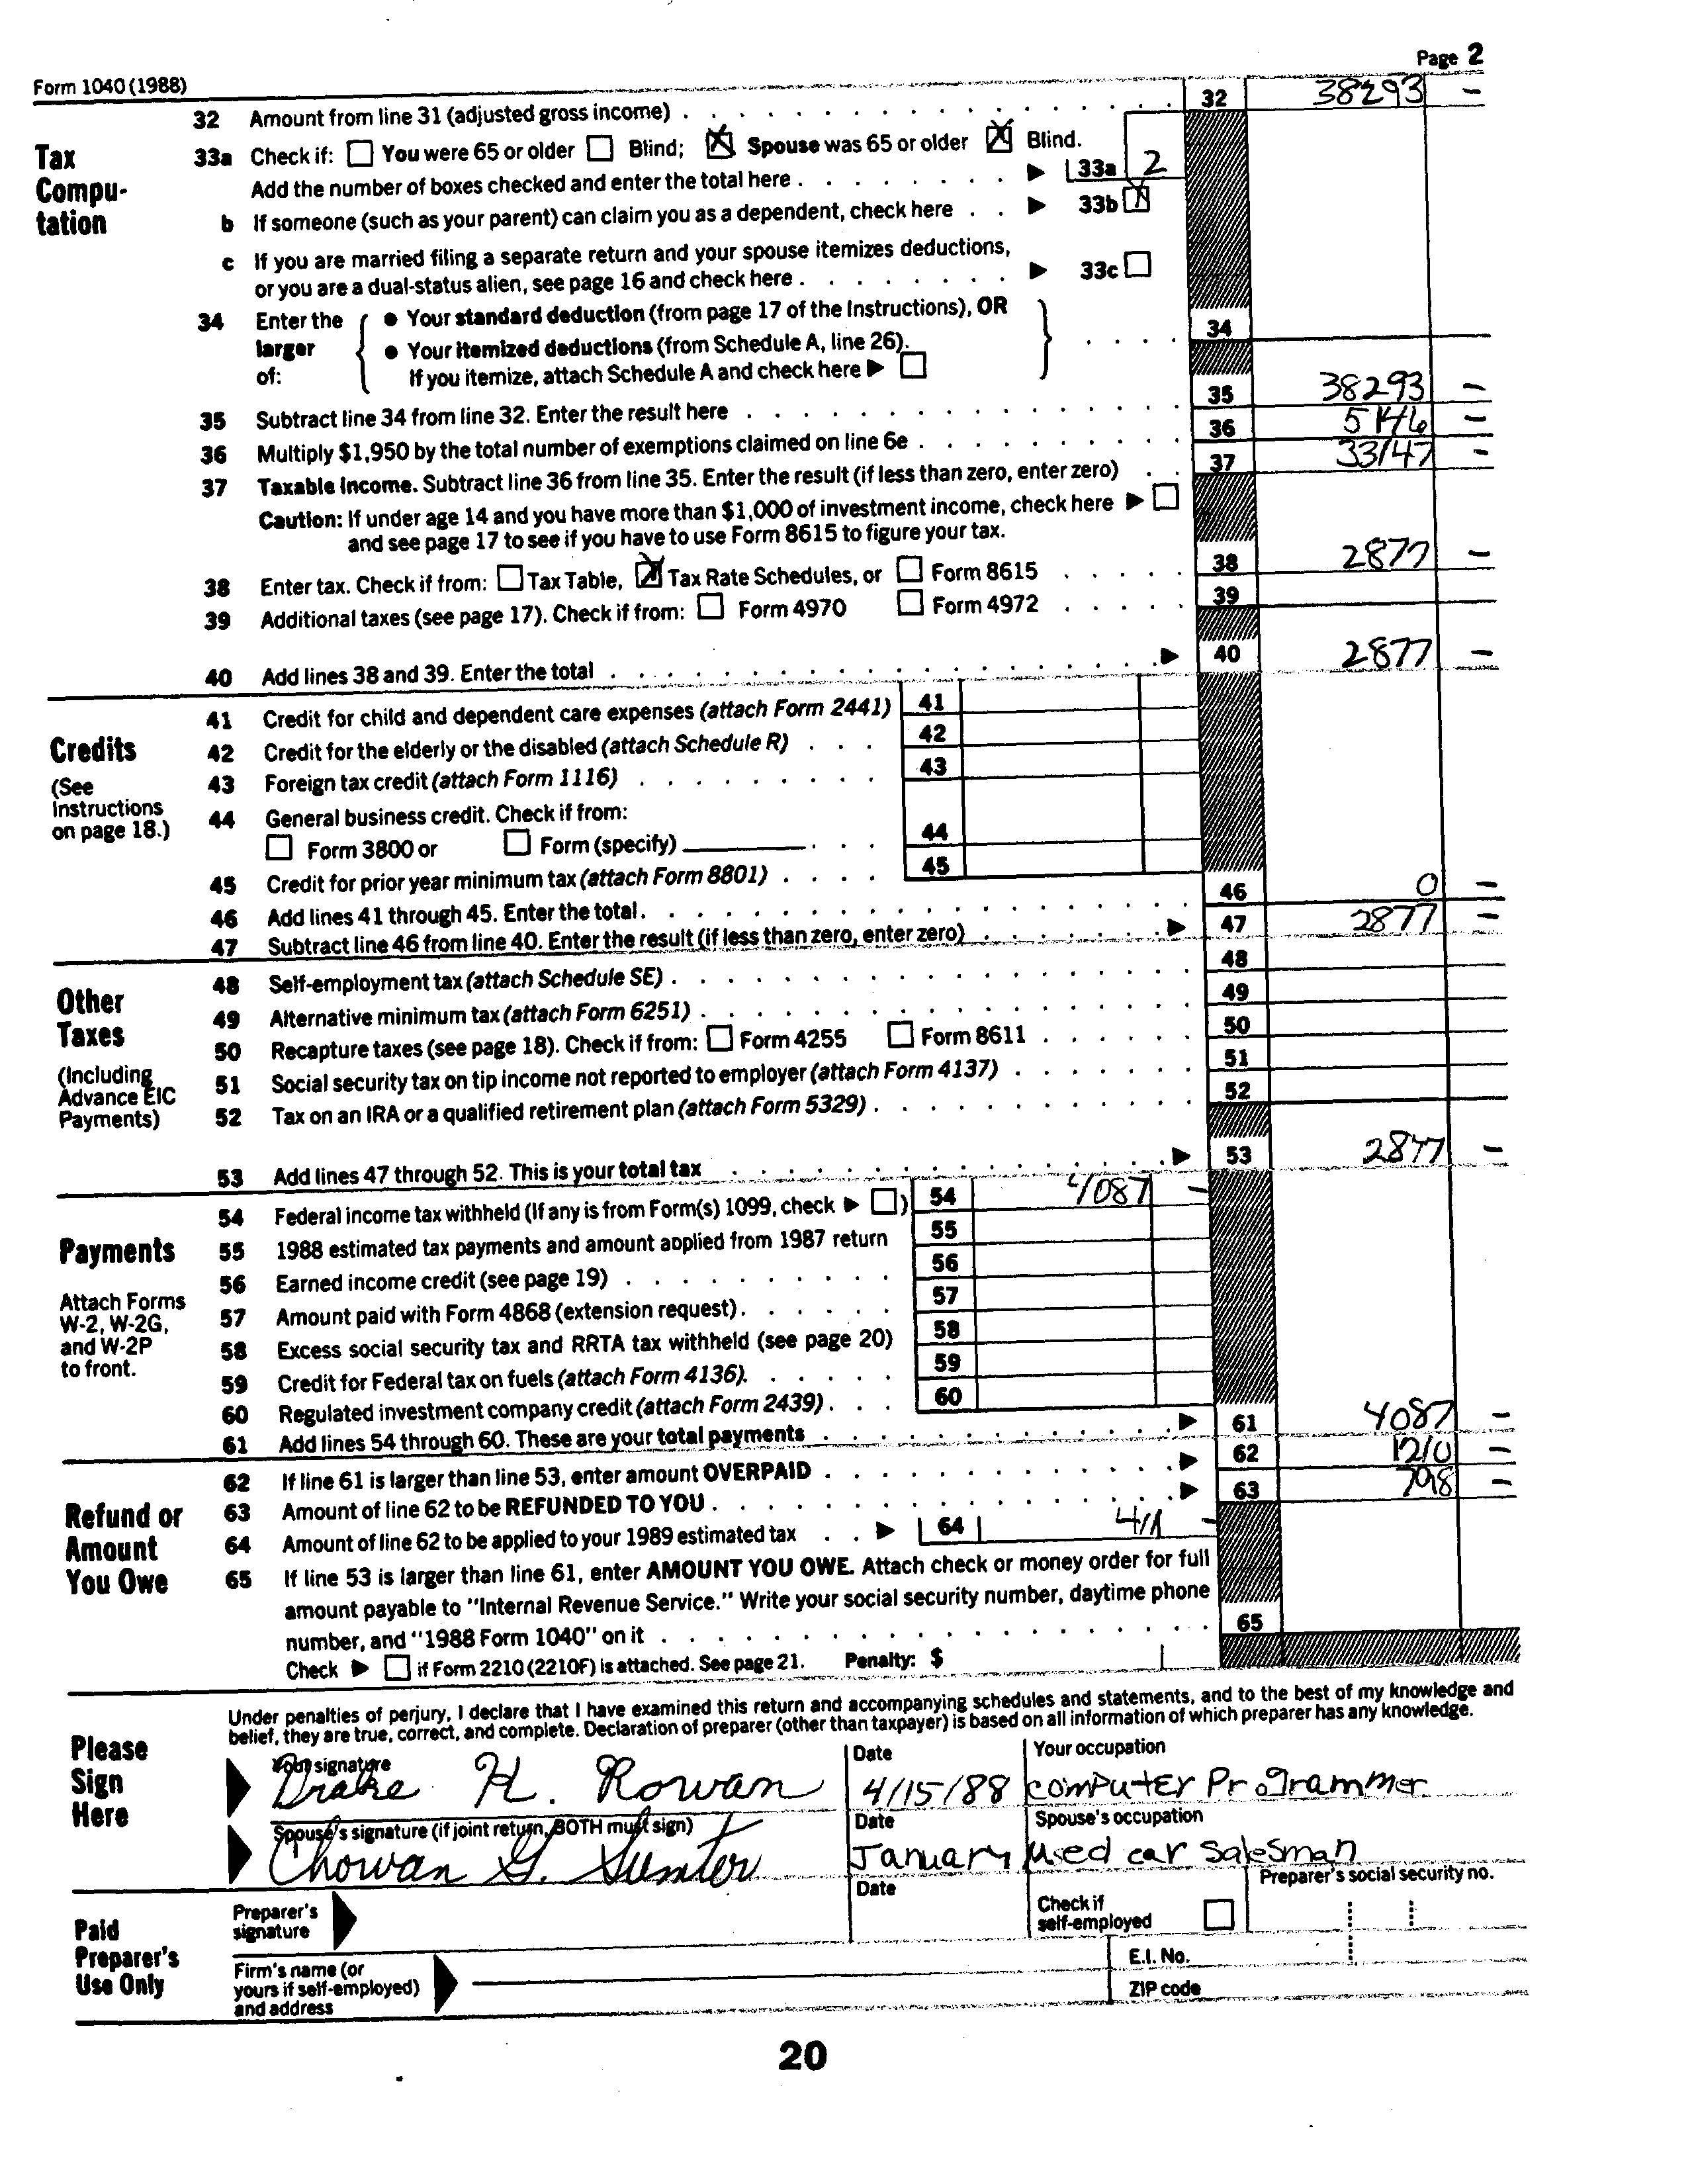 Form 1040 (1988)
Page 2
Tax Computation
32 Amount from line 31 (adjusted gross income) 32 38293 –
33a Check if: ☐ You were 65 or older ☐ Blind; ☒ Spouse was 65 or older ☒ Blind.
Add the number of boxes checked and enter the total here ▶ 33a 2
b If someone (such as your parent) can claim you as a dependent, check here ▶ 33b ☒
c If you are married filing a separate return and your spouse itemizes deductions,
or you are a dual-status alien, see page 16 and check here ▶ 33c ☐
34 Enter the larger of: { ● Your standard deduction (from page 17 of the Instructions), OR
● Your itemized deductions (from Schedule A, line 26).
If you itemize, attach Schedule A and check here ▶ ☐ } 34
35 Subtract line 34 from line 32. Enter the result here 35 38293 –
36 Multiply $1,950 by the total number of exemptions claimed on line 6e 36 5146 –
37 Taxable income. Subtract line 36 from line 35. Enter the result (if less than zero, enter zero) 37 33147 –
Caution: If under age 14 and you have more than $1,000 of investment income, check here ▶ ☐
and see page 17 to see if you have to use Form 8615 to figure your tax.
38 Enter tax. Check if from: ☐ Tax Table, ☒ Tax Rate Schedules, or ☐ Form 8615 38 2877 –
39 Additional taxes (see page 17). Check if from: ☐ Form 4970 ☐ Form 4972 39
40 Add lines 38 and 39. Enter the total ▶ 40 2877 –
Credits
(See Instructions on page 18.)
41 Credit for child and dependent care expenses (attach Form 2441) 41
42 Credit for the elderly or the disabled (attach Schedule R) 42
43 Foreign tax credit (attach Form 1116) 43
44 General business credit. Check if from:
☐ Form 3800 or ☐ Form (specify) 44
45 Credit for prior year minimum tax (attach Form 8801) 45
46 Add lines 41 through 45. Enter the total 46 0 –
47 Subtract line 46 from line 40. Enter the result (if less than zero, enter zero) ▶ 47 2877 –
Other Taxes
(Including Advance EIC Payments)
48 Self-employment tax (attach Schedule SE) 48
49 Alternative minimum tax (attach Form 6251) 49
50 Recapture taxes (see page 18). Check if from: ☐ Form 4255 ☐ Form 8611 50
51 Social security tax on tip income not reported to employer (attach Form 4137) 51
52 Tax on an IRA or a qualified retirement plan (attach Form 5329) 52
53 Add lines 47 through 52. This is your total tax ▶ 53 2877 –
Payments
Attach Forms W-2, W-2G, and W-2P to front.
54 Federal income tax withheld (If any is from Form(s) 1099, check ▶ ☐) 54 4087 –
55 1988 estimated tax payments and amount applied from 1987 return 55
56 Earned income credit (see page 19) 56
57 Amount paid with Form 4868 (extension request) 57
58 Excess social security tax and RRTA tax withheld (see page 20) 58
59 Credit for Federal tax on fuels (attach Form 4136) 59
60 Regulated investment company credit (attach Form 2439) 60
61 Add lines 54 through 60. These are your total payments ▶ 61 4087 –
Refund or Amount You Owe
62 If line 61 is larger than line 53, enter amount OVERPAID ▶ 62 1210 –
63 Amount of line 62 to be REFUNDED TO YOU ▶ 63 798 –
64 Amount of line 62 to be applied to your 1989 estimated tax ▶ 64
65 If line 53 is larger than line 61, enter AMOUNT YOU OWE. Attach check or money order for full
amount payable to "Internal Revenue Service." Write your social security number, daytime phone
number, and "1988 Form 1040" on it 65
Check ▶ ☐ if Form 2210 (2210F) is attached. See page 21. Penalty: $
Please Sign Here
Under penalties of perjury, I declare that I have examined this return and accompanying schedules and statements, and to the best of my knowledge and
belief, they are true, correct, and complete. Declaration of preparer (other than taxpayer) is based on all information of which preparer has any knowledge.
Your signature Date Your occupation
Drake H. Rowan 4/15/88 computer Programmer
Spouse's signature (if joint return, BOTH must sign) Date Spouse's occupation
Chowan G. Sumter January used car salesman
Paid Preparer's Use Only
Preparer's signature Date Check if self-employed ☐ Preparer's social security no.
Firm's name (or yours if self-employed) and address
E.I. No.
ZIP code
20